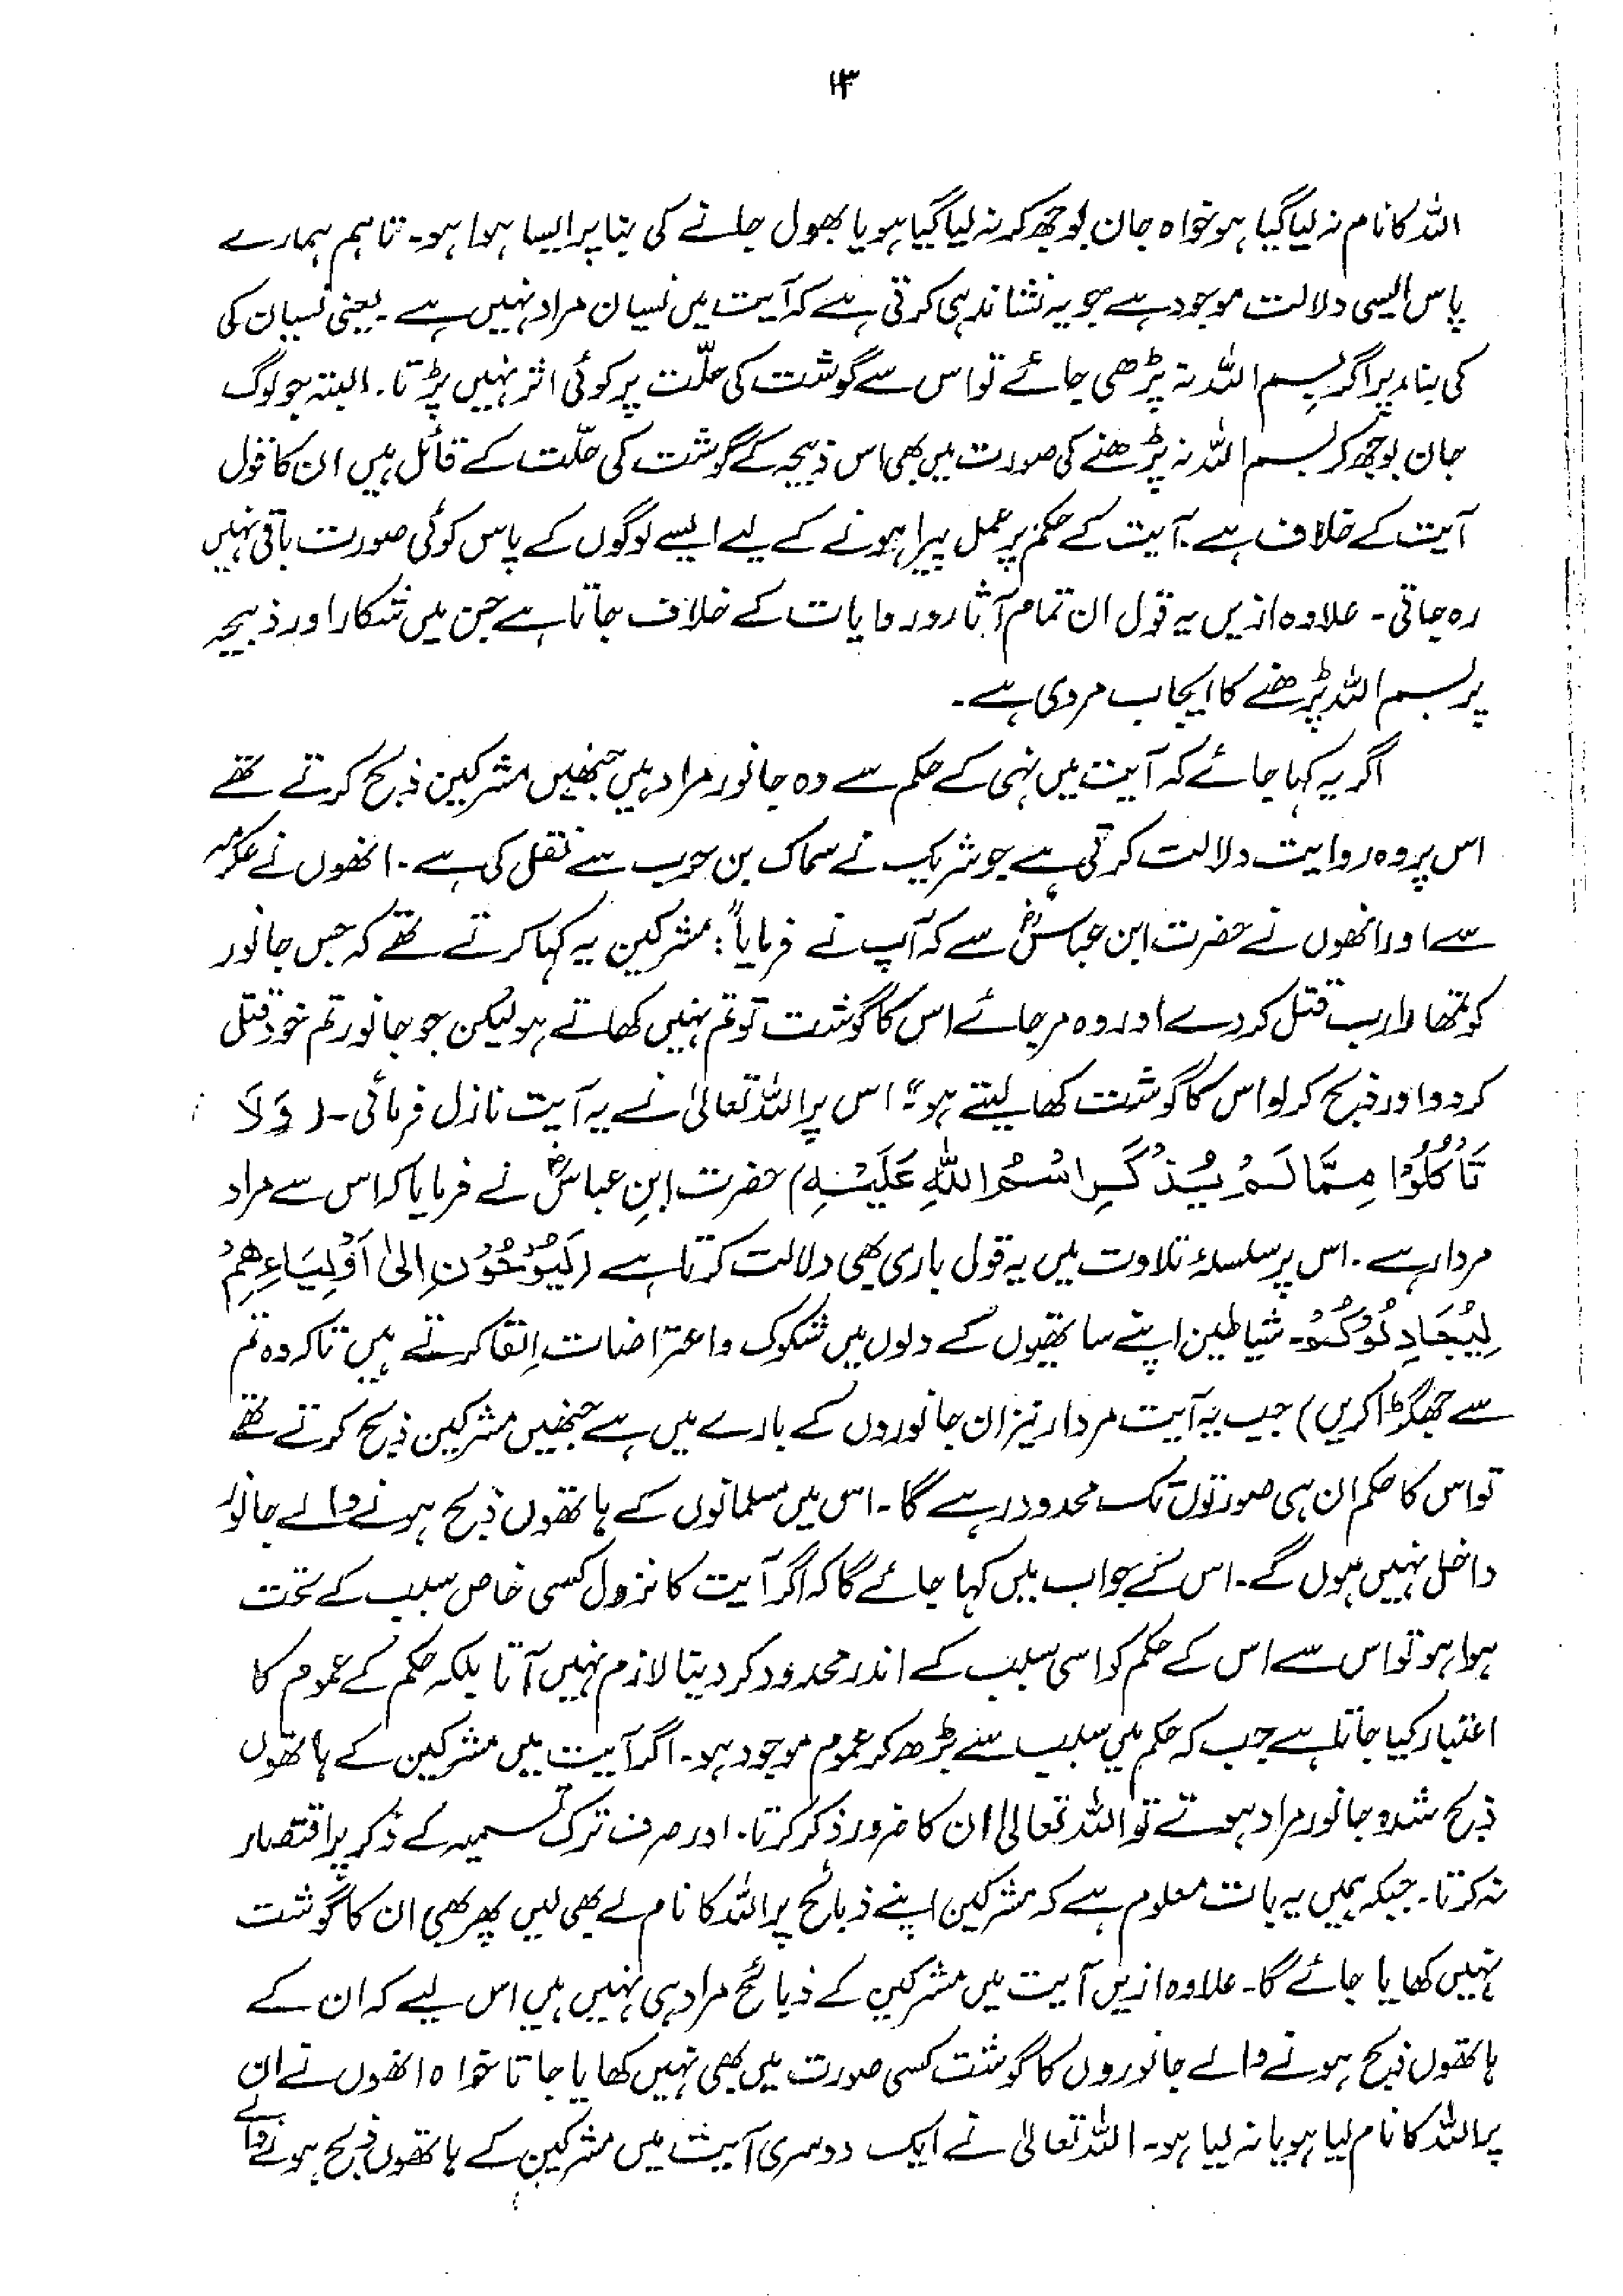 ۱۳
اللہ کا نام نہ لیا گیا ہو خواہ جان بوجھ کر نہ لیا گیا ہو یا بھول جانے کی بنا پر ایسا ہوا ہو۔ تاہم ہمارے
پاس ایسی دلالت موجود ہے جو یہ نشاندہی کرتی ہے کہ آیت میں نسیان مراد نہیں ہے۔ یعنی نسیان کی
کی بناء پر اگر بسم اللہ نہ پڑھی جائے تو اس سے گوشت کی حلّت پر کوئی اثر نہیں پڑتا۔ البتہ جو لوگ
جان بوجھ کر بسم اللہ نہ پڑھنے کی صورت میں بھی اس ذبیحہ کے گوشت کی حلّت کے قائل ہیں ان کا قول
آیت کے خلاف ہے۔ آیت کے حکم پر عمل پیرا ہونے کے لیے ایسے لوگوں کے پاس کوئی صورت باقی نہیں
رہ جاتی۔ علاوہ ازیں یہ قول ان تمام آثار و روایات کے خلاف جاتا ہے جن میں شکار اور ذبیحہ
پر بسم اللہ پڑھنے کا ایجاب مروی ہے۔
اگر یہ کہا جائے کہ آیت میں نہی کے حکم سے وہ جانور مراد ہیں جنھیں مشرکین ذبح کرتے تھے
اس پر وہ روایت دلالت کرتی ہے جو شریک نے سماک بن حرب سے نقل کی ہے۔ انھوں نے عکرمہ
سے اور انھوں نے حضرت ابن عباسؓ سے کہ آپ نے فرمایا: "مشرکین یہ کہا کرتے تھے کہ جس جانور
کو تمھارا رب قتل کر دے اور وہ مر جائے اس کا گوشت تو تم نہیں کھاتے ہو لیکن جو جانور تم خود قتل
کر دو اور ذبح کر لو اس کا گوشت کھا لیتے ہو"۔ اس پر اللہ تعالیٰ نے یہ آیت نازل فرمائی۔ (وَلَا
تَأْكُلُوْا مِمَّا لَمْ يُذْكَرِ اسْمُ اللّٰهِ عَلَيْهِ) حضرت ابنِ عباسؓ نے فرمایا کہ اس سے مراد
مردار ہے۔ اس پر سلسلۂ تلاوت میں یہ قول باری بھی دلالت کرتا ہے (لَيُوْحُوْنَ اِلىٰ اَوْلِيَاءِهِمْ
لِيُجَادِلُوْكُمْ۔ شیاطین اپنے ساتھیوں کے دلوں میں شکوک و اعتراضات اِلقا کرتے ہیں تاکہ وہ تم
سے جھگڑا کریں) جب یہ آیت مردار نیز ان جانوروں کے بارے میں ہے جنھیں مشرکین ذبح کرتے تھے
تو اس کا حکم ان ہی صورتوں تک محدود رہے گا۔ اس میں مسلمانوں کے ہاتھوں ذبح ہونے والے جانور
داخل نہیں ہوں گے۔ اس کے جواب میں کہا جائے گا کہ اگر آیت کا نزول کسی خاص سبب کے تحت
ہوا ہو تو اس سے اس کے حکم کو اسی سبب کے اندر محدود کر دینا لازم نہیں آتا بلکہ حکم کے عموم کا
اعتبار کیا جاتا ہے جب کہ حکم میں سبب سے بڑھ کر عموم موجود ہو۔ اگر آیت میں مشرکین کے ہاتھوں
ذبح شدہ جانور مراد ہوتے تو اللہ تعالیٰ ان کا ضرور ذکر کرتا۔ اور صرف ترک تسمیہ کے ذکر پر اقتصار
نہ کرتا۔ جبکہ ہمیں یہ بات معلوم ہے کہ مشرکین اپنے ذبائح پر اللہ کا نام لے بھی لیں پھر بھی ان کا گوشت
نہیں کھایا جائے گا۔ علاوہ ازیں آیت میں مشرکین کے ذبائح مراد ہی نہیں ہیں اس لیے کہ ان کے
ہاتھوں ذبح ہونے والے جانوروں کا گوشت کسی صورت میں بھی نہیں کھایا جاتا خواہ انھوں نے ان
پر اللہ کا نام لیا ہو یا نہ لیا ہو۔ اللہ تعالیٰ نے ایک دوسری آیت میں مشرکین کے ہاتھوں ذبح ہونے والے